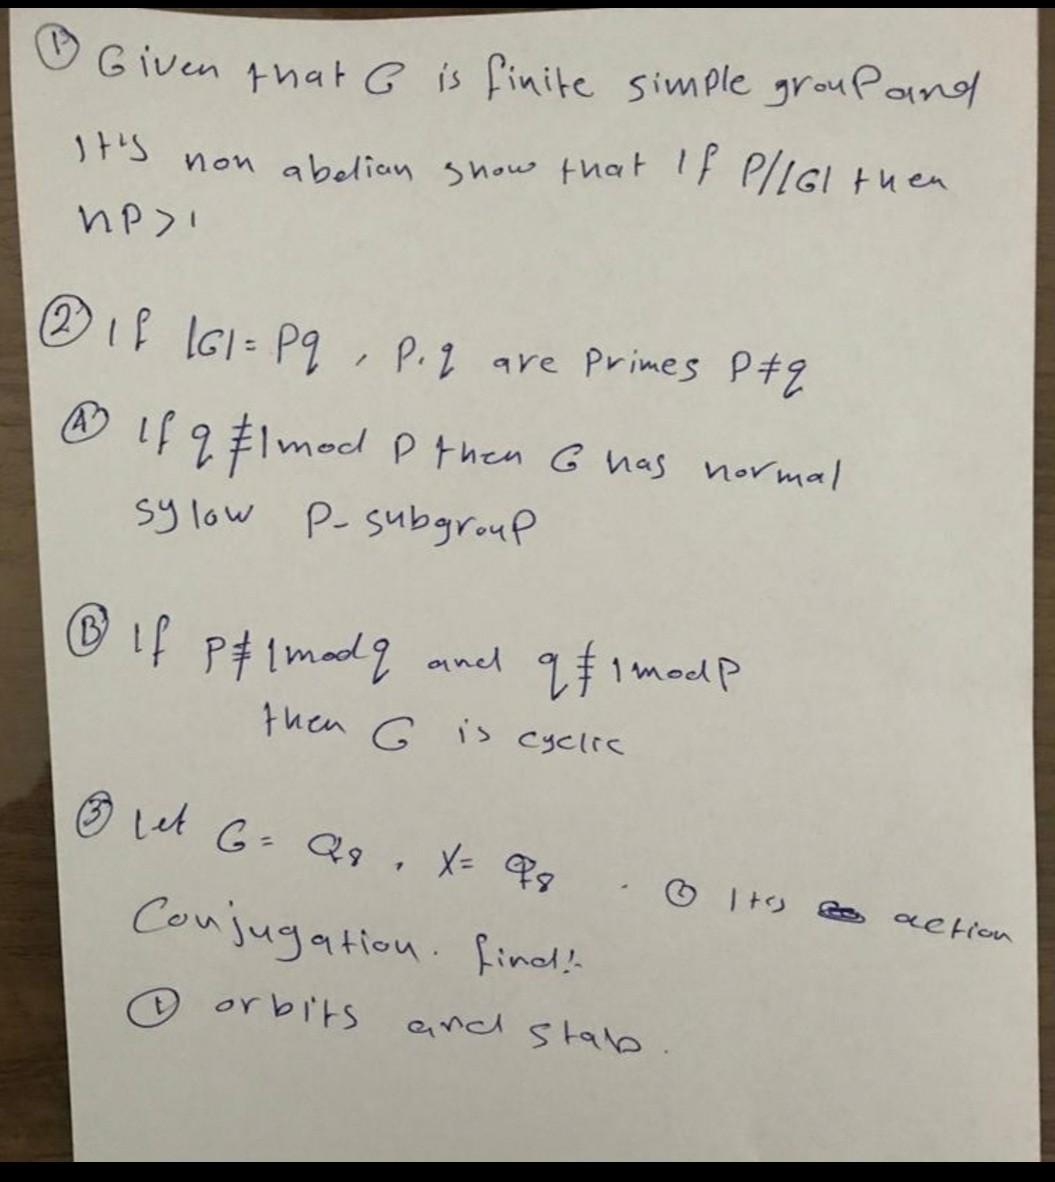 ① Given that G is finite simple group and
It's non abelian show that If P/|G| then
nP>1
② If |G|= Pq , P.q are Primes P≠q
Ⓐ If q ≢ 1 mod P then G has normal
sylow P- subgroup
Ⓑ If P ≢ 1 mod q and q ≢ 1 mod P
then G is cyclic
③ Let G= Q8 , X= Q8 . It's action
Conjugation. find:-
① orbits and stab.